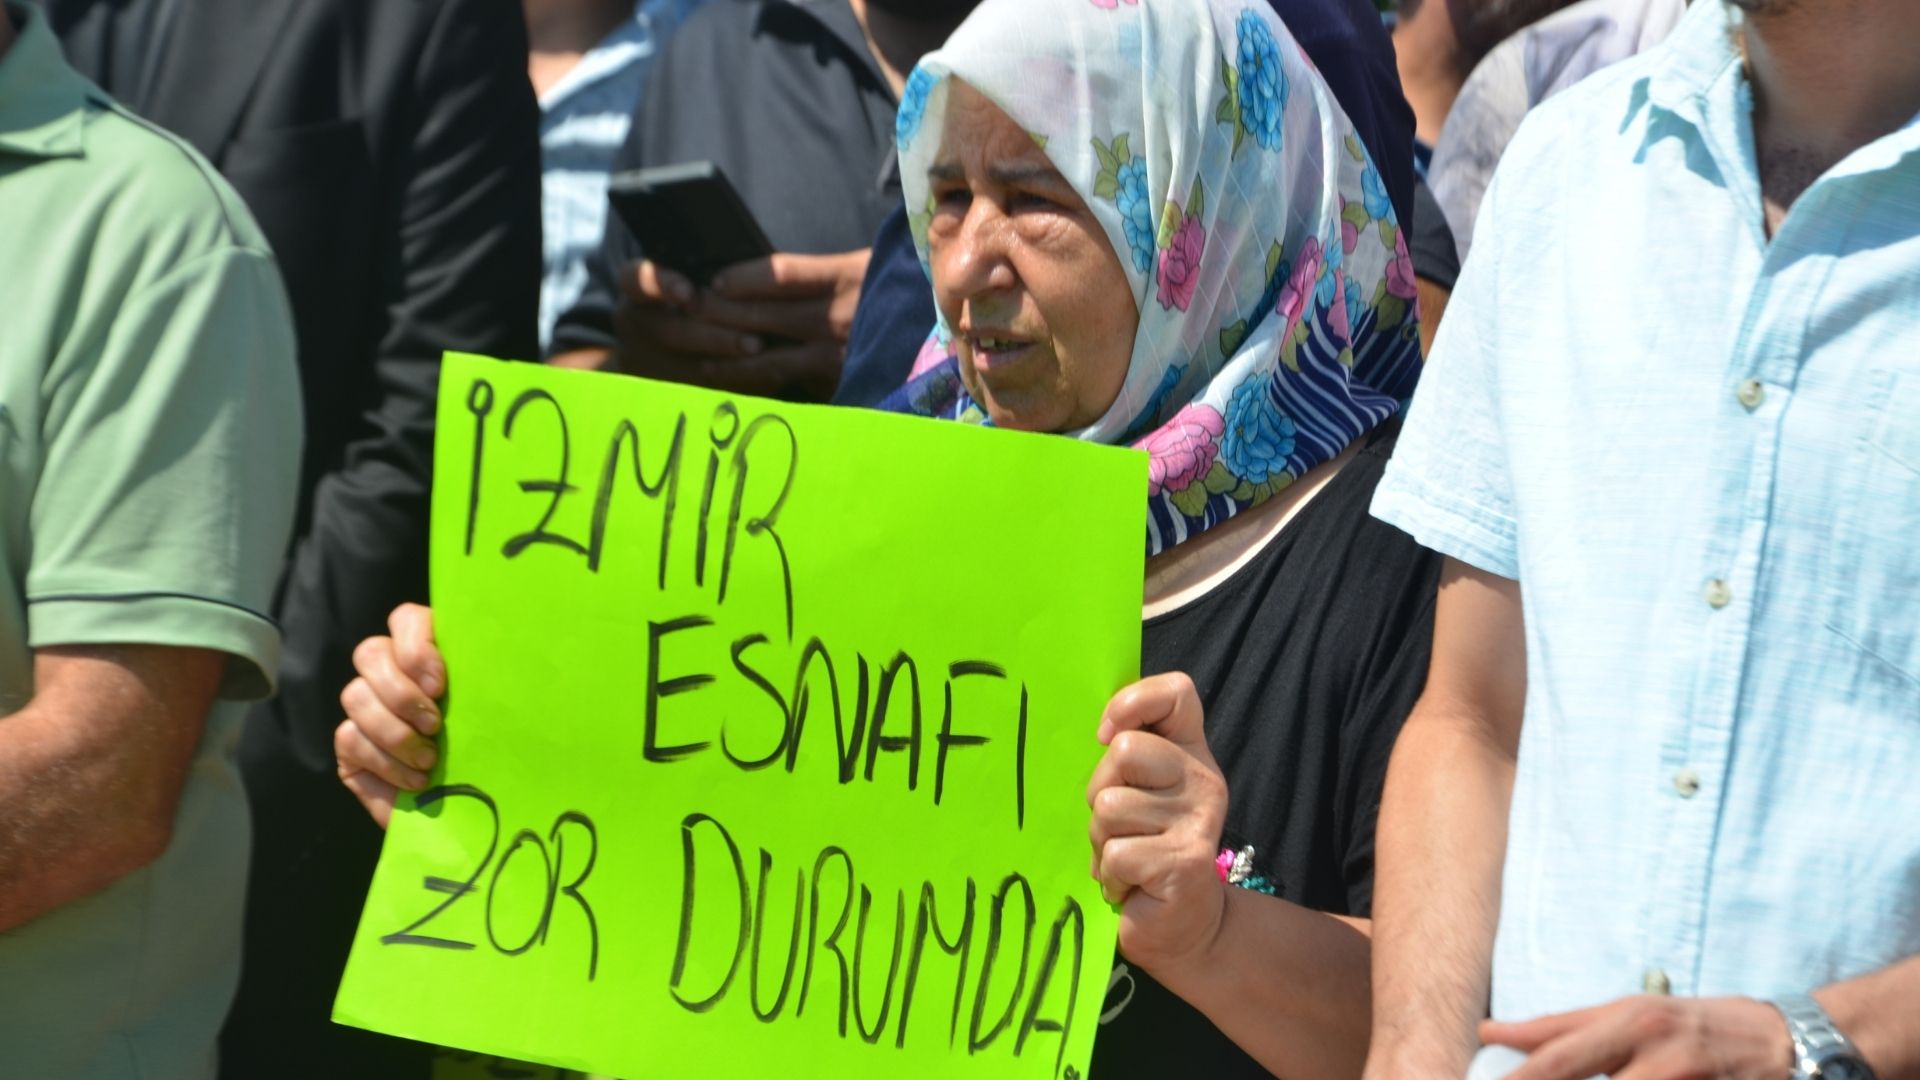 İZMİR
ESNAFI
ZOR DURUMDA.